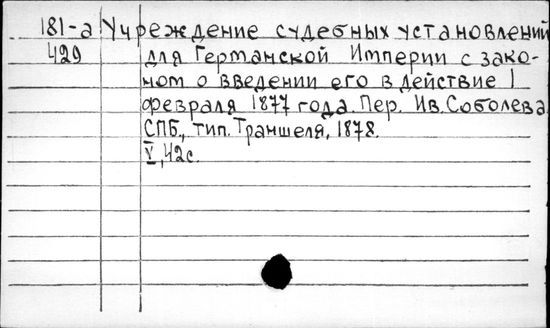 181-а Учреждение судебных установлений
429 для Германской Империи с зако-
ном о введении его в действие 1
февраля 1877 года. Пер. Ив. Соболева
СПБ., тип. Траншеля, 1878.
V, 42 с.